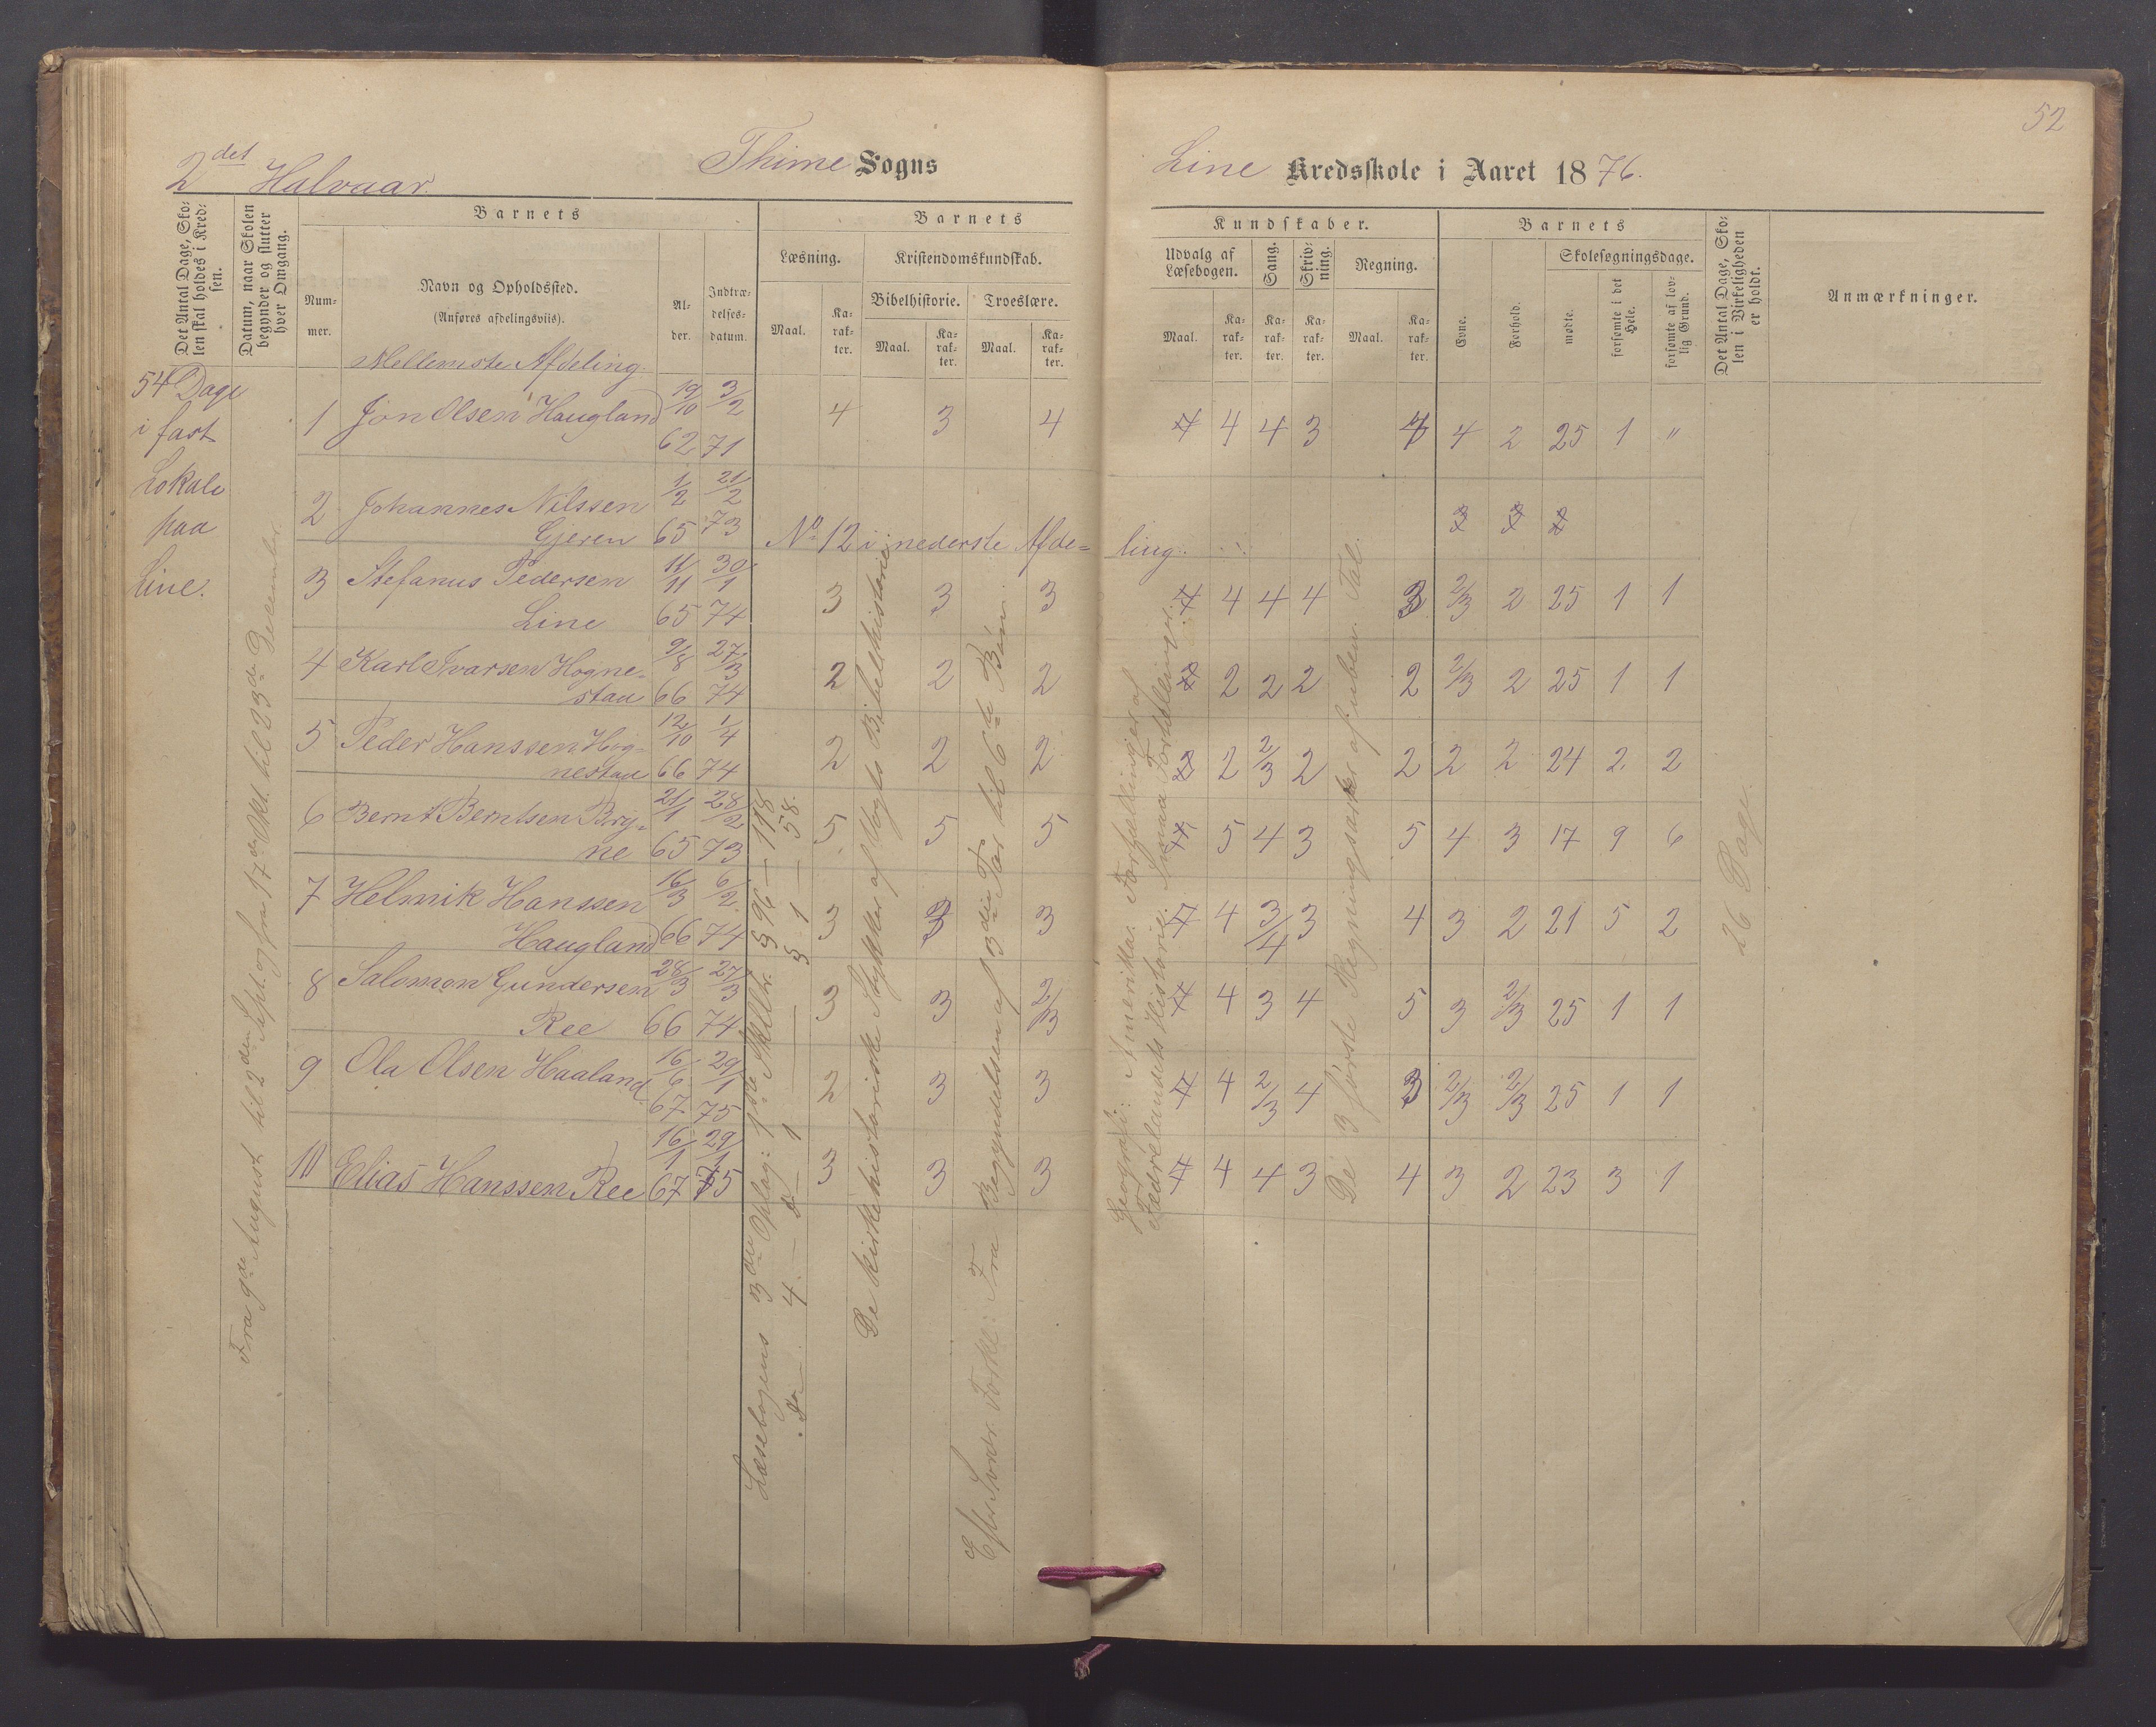 52
2det Halvaar.
Thime Sogns
Line Kredsskole i Aaret 1876.
Det Antal Dage, Skolen skal holdes i Kredsen.
Datum, naar Skolen begynder og slutter hver Omgang.
Barnets
Nummer.
Navn og Opholdssted.
(Anføres afdelingsviis).
Mellemste Afdeling.
Alder.
Indtrædelsesdatum.
Barnets
Læsning.
Maal.
Karakter.
Kristendomskundskab.
Bibelhistorie.
Maal.
Karakter.
Troeslære.
Maal.
Karakter.
Kundskaber.
Udvalg af Læsebogen.
Maal.
Karakter.
Sang.
Karakter.
Skrivning.
Karakter.
Regning.
Maal.
Karakter.
Barnets
Evne.
Forhold.
Skolesøgningsdage.
mødte.
forsømte i det Hele.
forsømte af lovlig Grund.
Det Antal Dage, Skolen i Virkeligheden er holdt.
Anmærkninger.
54 Dage
i fast
Lokale
paa
Line.
Fra 9de August til 2den Sept. og fra 17de Okt. til 23de December.
1 Jon Olsen Haugland 19/10 62 3/2 71 4 3 4 4 4 3 4 4 2 25 1 "
2 Johannes Nilssen
Gjeren 1/2 65 21/2 73 No 12 i nederste Afdeling.
3 Stefanus Pedersen
Line 11/11 65 30/1 74 3 3 3 4 4 4 3 2/3 2 25 1 1
4 Karl Ivarsen Hogne-
stad 9/8 66 27/3 74 2 2 2 2 2 2 2 2/3 2 25 1 1
5 Peder Hanssen Hog-
nestad 12/10 66 1/4 74 2 2 2 2 2/3 2 2 2 2 24 2 2
6 Bernt Berntsen Bry-
ne 21/1 65 28/2 73 5 5 5 5 4 3 5 4 3 17 9 6
7 Helmik Hanssen
Haugland 16/3 66 6/2 74 3 3 3 4 3/4 3 4 3 2 21 5 2
8 Salomon Gundersen
Ree 28/3 66 27/3 74 3 3 2/3 4 3 4 5 3 2/3 25 1 1
9 Ola Olsen Haaland 16/6 67 29/1 75 2 3 3 4 2/3 4 3 2/3 2/3 25 1 1
10 Elias Hanssen Ree 16/1 67 29/1 75 3 3 3 4 4 3 4 3 2 23 3 1
Læsebogens 3die Oplag: 1ste Skilln. § 96 — 118
do — 4. — do — 1 — § 1 — 58.
De kirkehistoriske Stykker af Vogts Bibelhistorie
Efter Sverdr. Forkl: Fra Begyndelsen af 3die Part til 6te Bøn.
Geografi: Amerika. Fortællinger af
Fædrelandets Historie. Smaa Fortællinger.
De 3 første Regningsarter af uben. Tal.
26 Dage.